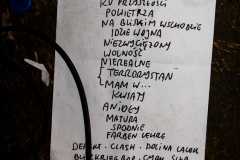 KU PRZESZŁOŚCI
POWIETRZA
NA BLISKIM WSCHODZIE
IDZIE WOJNA
NIEZWYCIĘŻONY
WOLNOŚĆ
NIEREALNE
TERRORYSTAN
MAM W...
KWIATY
ANIOŁY
MATURA
SPODNIE
FARBEN LEHRE
DEPAT. - CLASH - DOLINA LALEK
BLITZKRIEG BOP -